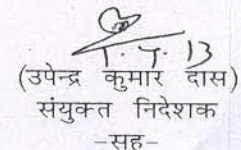 1.7.13
(उपेन्द्र कुमार दास)
संयुक्त निदेशक
-सह-